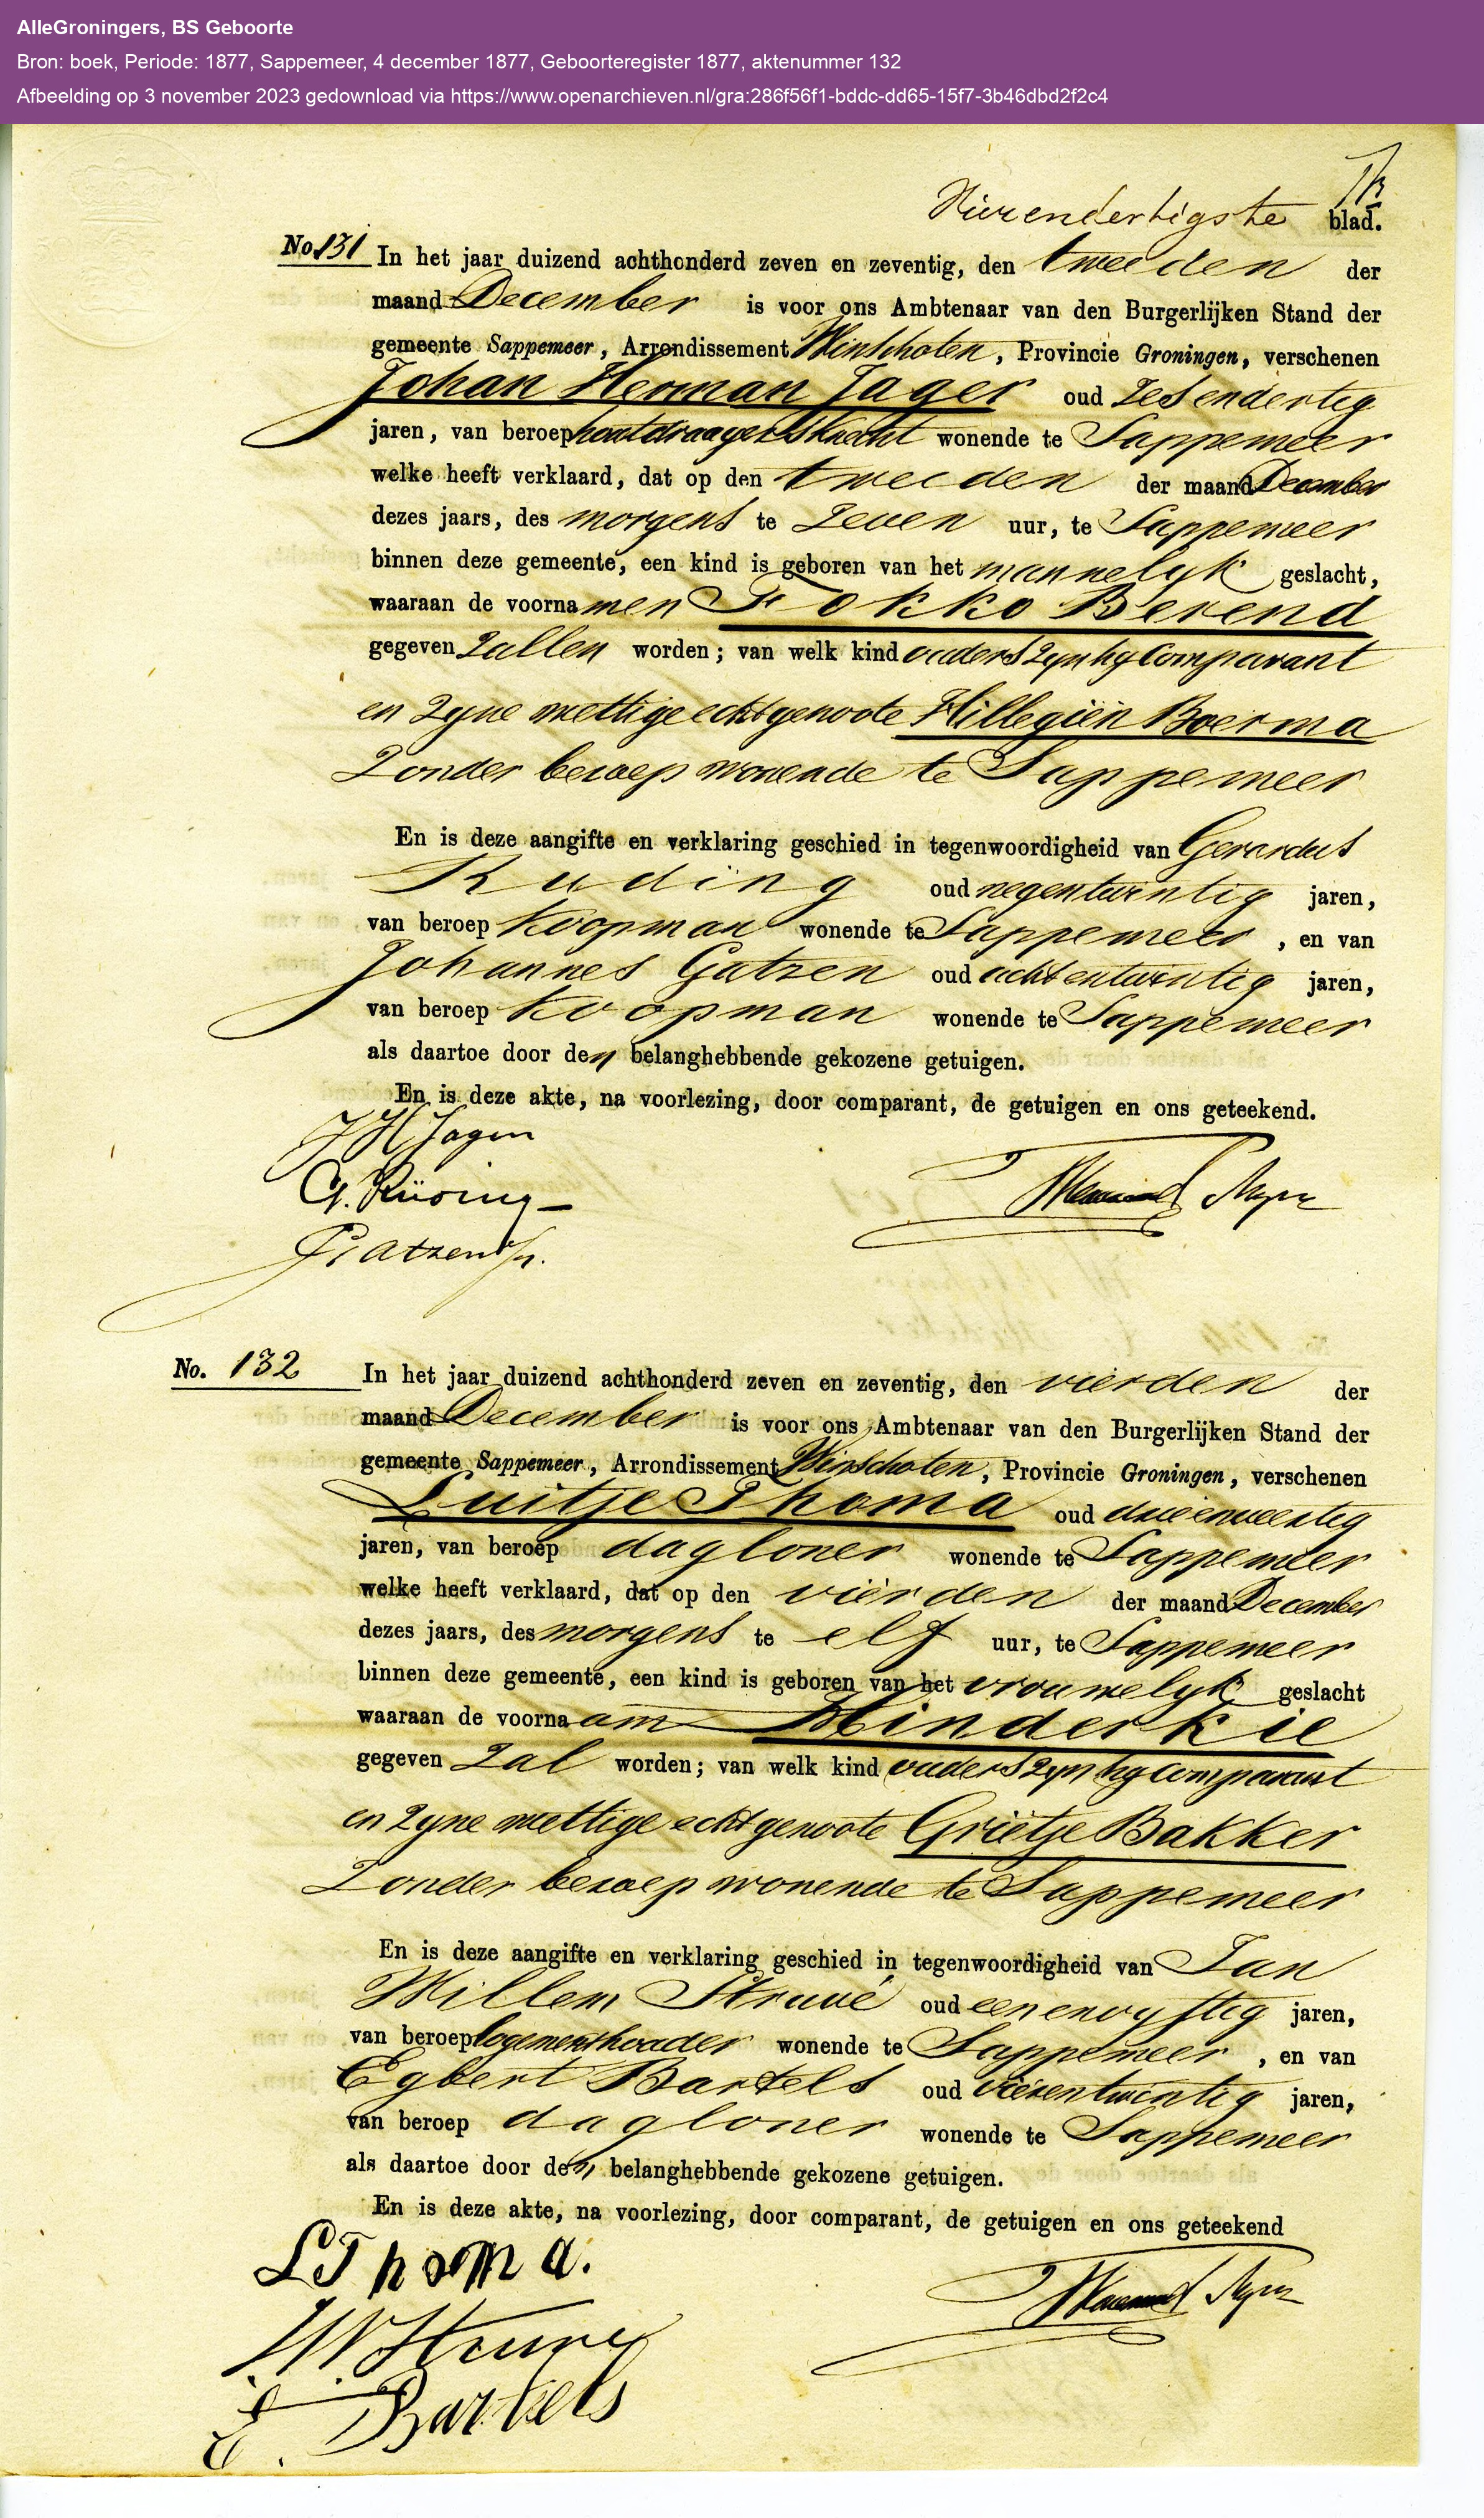 AlleGroningers, BS Geboorte
Bron: boek, Periode: 1877, Sappemeer, 4 december 1877, Geboorteregister 1877, aktenummer 132
Afbeelding op 3 november 2023 gedownload via https://www.openarchieven.nl/gra:286f56f1-bddc-dd65-15f7-3b46dbd2f2c4
Vierendertigste blad.
No. 131 In het jaar duizend achthonderd zeven en zeventig, den tweeden der
maand December is voor ons Ambtenaar van den Burgerlijken Stand der
gemeente Sappemeer, Arrondissement Winschoten, Provincie Groningen, verschenen
Johan Herman Jager oud zesendertig
jaren, van beroep houtdraagersknecht wonende te Sappemeer
welke heeft verklaard, dat op den tweeden der maand December
dezes jaars, des morgens te zeven uur, te Sappemeer
binnen deze gemeente, een kind is geboren van het mannelyk geslacht,
waaraan de voornamen Fokko Berend
gegeven zullen worden; van welk kind ouders zyn hy Comparant
en zyne wettige echtgenoote Hillegien Boerma
zonder beroep wonende te Sappemeer
En is deze aangifte en verklaring geschied in tegenwoordigheid van Gerardus
Ruding oud negentwintig jaren,
van beroep koopman wonende te Sappemeer, en van
Johannes Gatzen oud achtentwintig jaren,
van beroep koopman wonende te Sappemeer
als daartoe door den belanghebbende gekozene getuigen.
En is deze akte, na voorlezing, door comparant, de getuigen en ons geteekend.
J H Jager
G. Rüding
J Gatzen Jr.
No. 132 In het jaar duizend achthonderd zeven en zeventig, den vierden der
maand December is voor ons Ambtenaar van den Burgerlijken Stand der
gemeente Sappemeer, Arrondissement Winschoten, Provincie Groningen, verschenen
Luitje Thoma oud drieenveertig
jaren, van beroep dagloner wonende te Sappemeer
welke heeft verklaard, dat op den vierden der maand December
dezes jaars, des morgens te elf uur, te Sappemeer
binnen deze gemeente, een kind is geboren van het vrouwelyk geslacht
waaraan de voornaam Hinderkie
gegeven zal worden; van welk kind ouders zyn hy comparant
en zyne wettige echtgenoote Grietje Bakker
zonder beroep wonende te Sappemeer
En is deze aangifte en verklaring geschied in tegenwoordigheid van Jan
Willem Struvé oud eenenvyftig jaren,
van beroep logementhouder wonende te Sappemeer, en van
Egbert Bartels oud vierentwintig jaren,
van beroep dagloner wonende te Sappemeer
als daartoe door den belanghebbende gekozene getuigen.
En is deze akte, na voorlezing, door comparant, de getuigen en ons geteekend
L Thoma.
J W Struve
E. Bartels